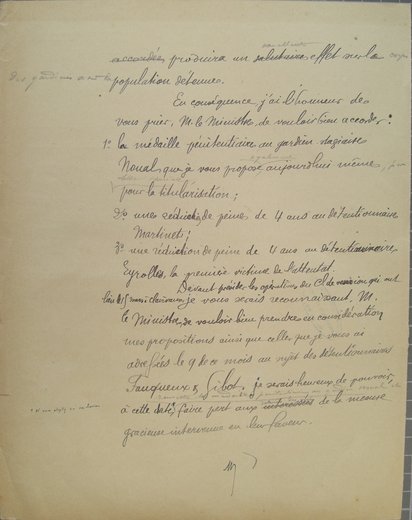 accordées produira un salutaire effet sur la
population détenue.
En conséquence j'ai l'honneur de
vous prier, M. le Ministre, de vouloir bien accorder:
1º la médaille pénitentiaire au gardien stagiaire
Noual, que je vous propose aujourd'hui même,
pour la titularisation;
2º une réduction de peine de 4 ans au détentionnaire
Martineti;
3º une réduction de peine de 4 ans au détentionnaire
Eyrolles, la première victime de l'attentat.
Devant présider les opérations du Cl de revision qui ont
lieu le 15 mars je vous serais reconnaissant, M.
le Ministre, de vouloir bien prendre en considération
mes propositions ainsi que celles que je vous ai
adressées le 9 de ce mois au sujet des détentionnaires
Fauqueux & Gibot. je serais heureux de pouvoir
à cette date, faire part aux intéressés de la mesure
gracieuse intervenue en leur faveur.